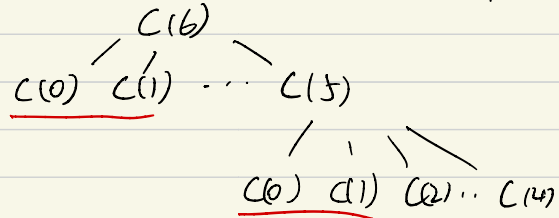 C(6)
C(0) C(1) ... C(5)
C(0) C(1) C(2) .. C(4)